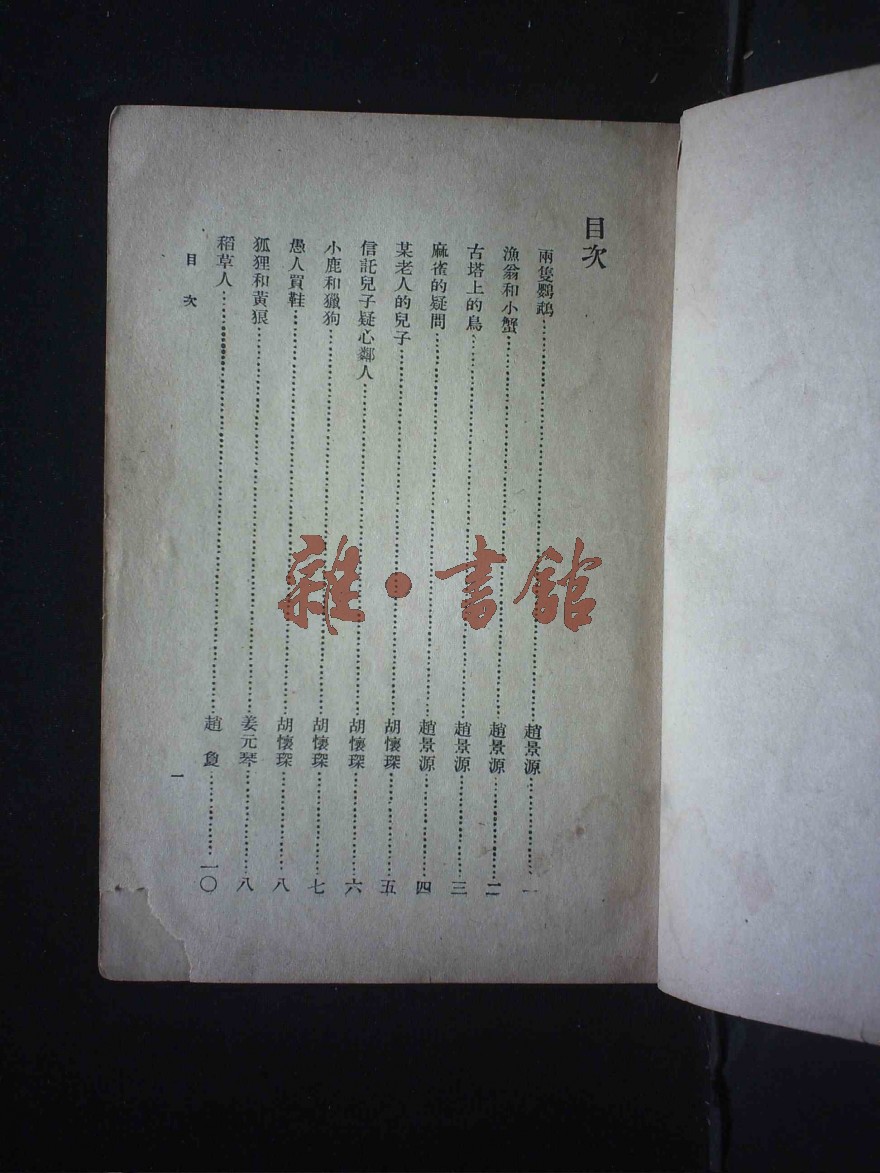 目次
兩隻鸚鵡 趙景源 一
漁翁和小蟹 趙景源 二
古塔上的鳥 趙景源 三
麻雀的疑問 趙景源 四
某老人的兒子 胡懷琛 五
信託兒子疑心鄰人 胡懷琛 六
小鹿和獵狗 胡懷琛 七
愚人買鞋 胡懷琛 八
狐狸和黃狼 姜元琴 八
稻草人 趙 一〇
目次
一
雜·書館